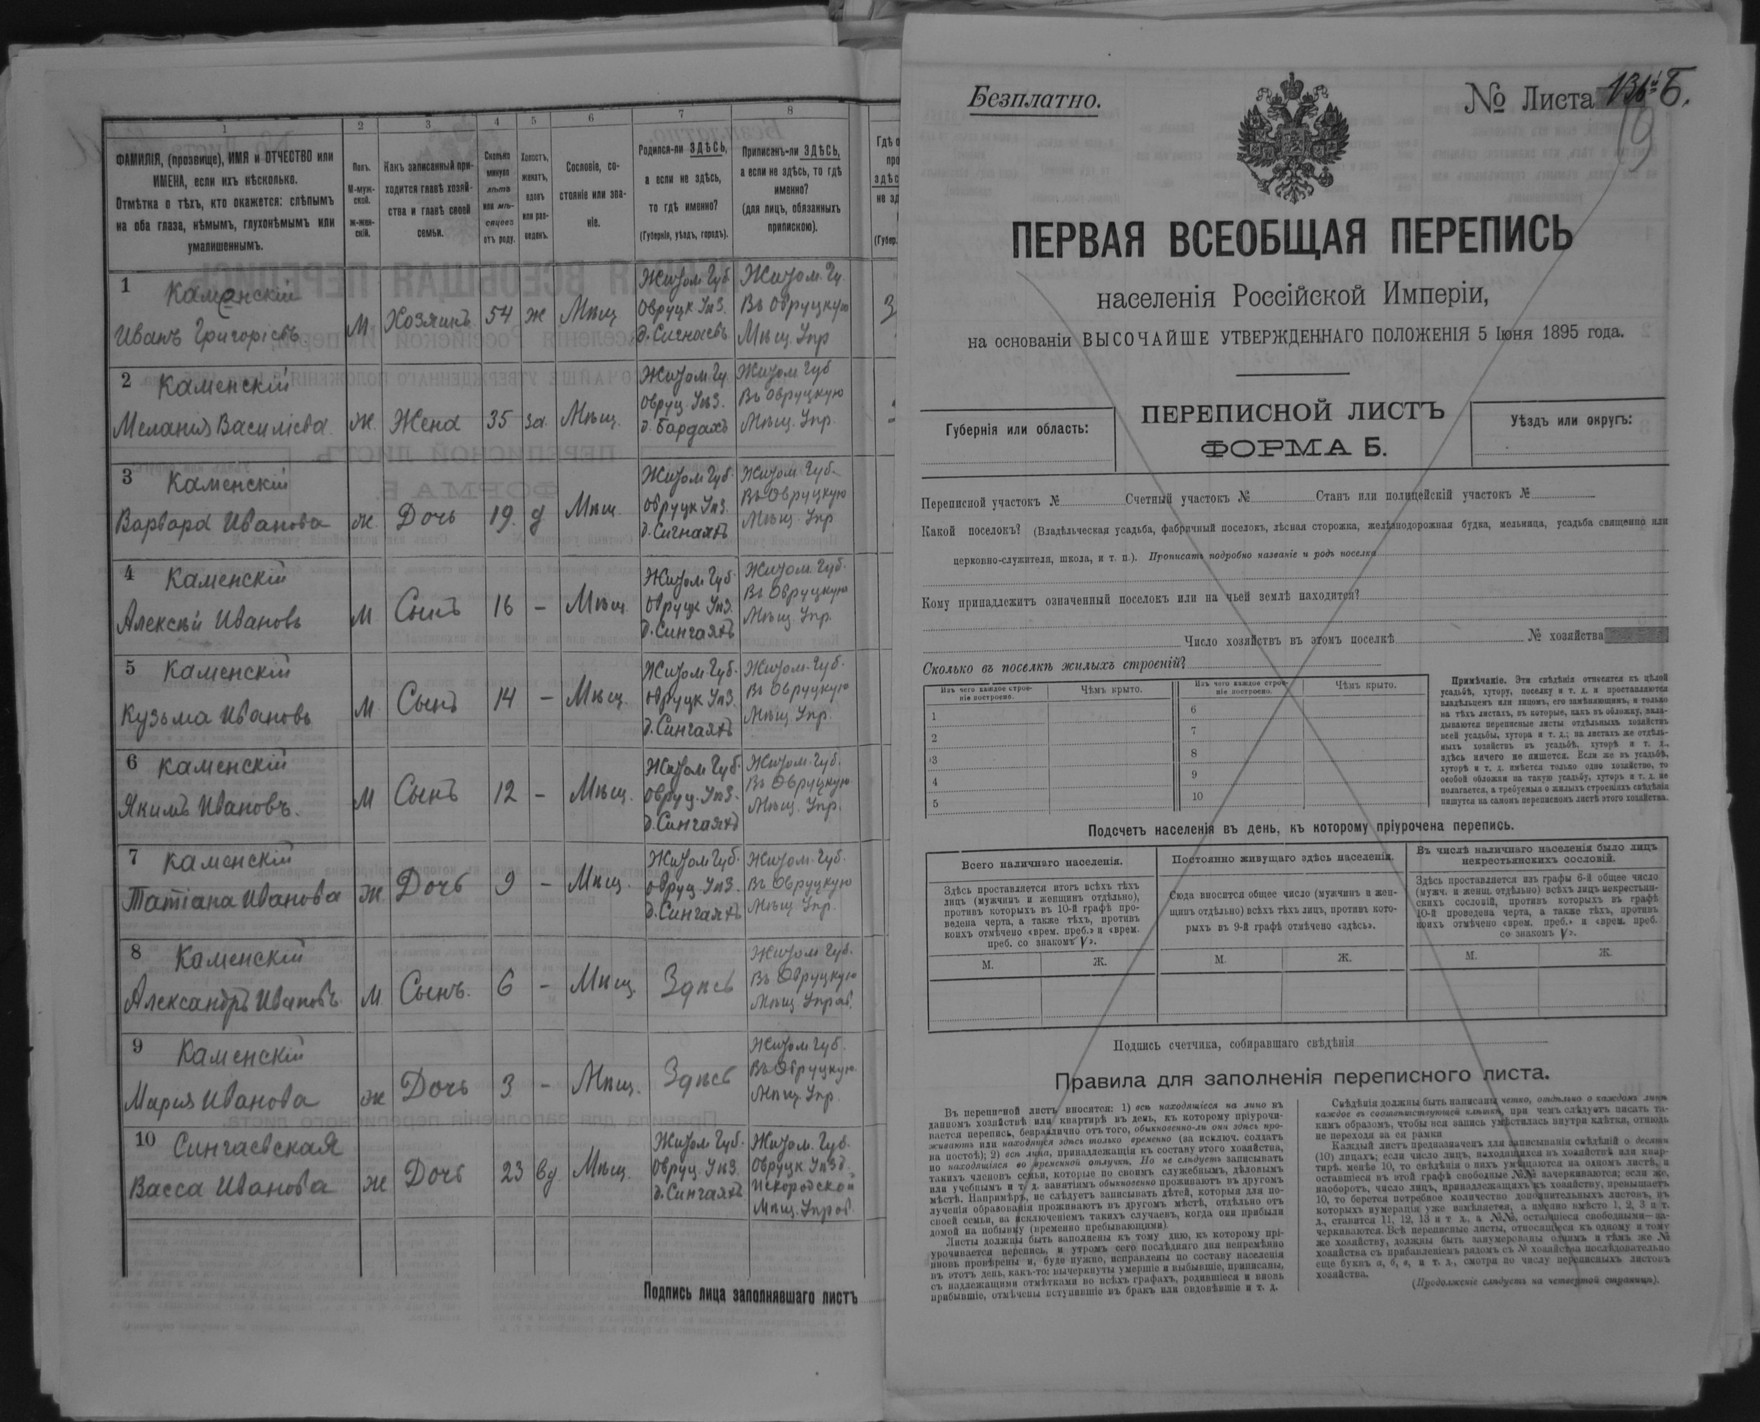 1
2
3
4
5
6
7
8
ФАМИЛІЯ, (прозвище), ИМЯ и ОТЧЕСТВО или
ИМЕНА, если ихъ нѣсколько.
Отмѣтка о тѣхъ, кто окажется: слѣпымъ
на оба глаза, нѣмымъ, глухонѣмымъ или
умалишеннымъ.
Полъ.
М-муж-
ской.
Ж-жен-
скій.
Какъ записанный при-
ходится главѣ хозяй-
ства и главѣ своей
семьи.
Сколько
минуло
лѣтъ
или мѣ-
сяцевъ
отъ роду.
Холостъ,
женатъ,
вдовъ
или раз-
веденъ.
Сословіе, со-
стояніе или зва-
ніе.
Родился-ли ЗДѢСЬ,
а если не здѣсь,
то гдѣ именно?
(Губернія, уѣздъ, городъ).
Приписанъ-ли ЗДѢСЬ,
а если не здѣсь, то гдѣ
именно?
(для лицъ, обязанныхъ
припискою).
1 Каменскій
Иванъ Григоріевъ.
М. Хозяинъ 54 ж Мѣщ
Житом Губ
Овруцк Уѣз.
Житом. Гу.
Въ Овруцкую
Мѣщ. Упр
2 Каменскій
Меланія Василіева.
Ж. Жена 35 за. Мѣщ.
Житом Гу.
Овруц. Уѣз.
д. Бардахъ
Житом Губ
Въ Овруцкую
Мѣщ. Упр.
3 Каменскій
Варвара Иванова
ж. Дочь 19. д Мѣщ.
Житом Губ.
Овруцк Уѣз.
Житом. Губ.
Въ Овруцкую
Мѣщ. Упр
4 Каменскій
Алексѣй Ивановъ
М Сынъ 16 – Мѣщ.
Житом Губ.
Овруцк Уѣз.
д. Сингаяхъ
Житом. Губ.
Въ Овруцкую
Мѣщ. Упр.
5 Каменскій
Кузьма Ивановъ
М Сынъ 14 – Мѣщ.
Житом Губ.
Овруцк Уѣз.
д. Сингаяхъ
Житом. Губ.
Въ Овруцкую
Мѣщ. Упр.
6 Каменскій
Якимъ Ивановъ.
М Сынъ 12 – Мѣщ.
Житом Губ.
Овруц. Уѣз.
д. Сингаяхъ
Житом. Губ.
Въ Овруцкую
Мѣщ. Упр.
7 Каменскій
Татіана Иванова
Ж Дочь 9 – Мѣщ.
Житом Губ.
Овруц. Уѣз.
д. Сингаяхъ
Житом. Губ.
Въ Овруцкую
Мѣщ Упр.
8 Каменскій
Александръ Ивановъ
М Сынъ. 6 – Мѣщ. Здѣсь
Житом Губ.
Въ Овруцкую
Мѣщ. Управ.
9 Каменскій
Марія Иванова
ж Дочь 3 – Мѣщ. Здѣсь
Житом Губ.
Въ Овруцкую
Мѣщ. Упр.
10 Сингаевская
Васса Иванова
ж Дочь 23 вд Мѣщ.
Житом Губ.
Овруц. Уѣз.
д. Сингаяхъ
Житом. Губ.
Овруцк Уѣзд.
Искородской
Мѣщ. Управ.
Подпись лица заполнявшаго листъ
Безплатно.
№ Листа
Б.
ПЕРВАЯ ВСЕОБЩАЯ ПЕРЕПИСЬ
населенія Россійской Имперіи,
на основаніи ВЫСОЧАЙШЕ УТВЕРЖДЕННАГО ПОЛОЖЕНІЯ 5 Іюня 1895 года.
ПЕРЕПИСНОЙ ЛИСТЪ
ФОРМА Б.
Губернія или область:
Уѣздъ или округъ:
Переписной участокъ № Счетный участокъ № Станъ или полицейскій участокъ №
Какой поселокъ? (Владѣльческая усадьба, фабричный поселокъ, лѣсная сторожка, желѣзнодорожная будка, мельница, усадьба священно или
церковно-служителя, школа, и т. п.). Прописать подробно названіе и родъ поселка
Кому принадлежитъ означенный поселокъ или на чьей землѣ находится?
Число хозяйствъ въ этомъ поселкѣ № хозяйства
Сколько въ поселкѣ жилыхъ строеній?
Изъ чего каждое строе-
ніе построено.
Чѣмъ крыто.
Изъ чего каждое строе-
ніе построено.
Чѣмъ крыто.
1
2
3
4
5
6
7
8
9
10
Примѣчаніе. Эти свѣдѣнія относятся къ цѣлой
усадьбѣ, хутору, поселку и т. д. и проставляются
владѣльцемъ или лицомъ, его замѣняющимъ, и только
на тѣхъ листахъ, въ которые, какъ въ обложку, вкла-
дываются переписные листы отдѣльныхъ хозяйствъ
всей усадьбы, хутора и т. д.; на листахъ же отдѣль-
ныхъ хозяйствъ въ усадьбѣ, хуторѣ и т. д.,
здѣсь ничего не пишется. Если же въ усадьбѣ,
хуторѣ и т. д. имѣется только одно хозяйство, то
особой обложки на такую усадьбу, хуторъ и т. д. не
полагается, а требуемыя о жилыхъ строеніяхъ свѣдѣнія
пишутся на самомъ переписномъ листѣ этого хозяйства.
Подсчетъ населенія въ день, къ которому пріурочена перепись.
Всего наличнаго населенія.
Здѣсь проставляется итогъ всѣхъ тѣхъ
лицъ (мужчинъ и женщинъ отдѣльно),
противъ которыхъ въ 10-й графѣ про-
ведена черта, а также тѣхъ, противъ
коихъ отмѣчено «врем. преб.» и «врем.
преб. со знакомъ V».
Постоянно живущаго здѣсь населенія.
Сюда вносится общее число (мужчинъ и жен-
щинъ отдѣльно) всѣхъ тѣхъ лицъ, противъ кото-
рыхъ въ 9-й графѣ отмѣчено «здѣсь».
Въ числѣ наличнаго населенія было лицъ
некрестьянскихъ сословій.
Здѣсь проставляется изъ графы 6-й общее число
(мужч. и женщ. отдѣльно) всѣхъ лицъ некрестьян-
скихъ сословій, противъ которыхъ въ графѣ
10-й проведена черта, а также тѣхъ, противъ
коихъ отмѣчено «врем. преб.» и «врем. преб.
со знакомъ V».
М. Ж. М. Ж. М. Ж.
Подпись счетчика, собиравшаго свѣдѣнія
Правила для заполненія переписного листа.
Въ переписной листъ вносятся: 1) всѣ находящіеся на лицо въ
данномъ хозяйствѣ или квартирѣ въ день, къ которому пріурочи-
вается перепись, безразлично отъ того, обыкновенно-ли они здѣсь про-
живаютъ или находятся здѣсь только временно (за исключ. солдатъ
на постоѣ); 2) всѣ лица, принадлежащія къ составу этого хозяйства,
но находящіяся во временной отлучкѣ. Но не слѣдуетъ записывать
такихъ членовъ семьи, которые по своимъ служебнымъ, дѣловымъ
или учебнымъ и т. д. занятіямъ обыкновенно проживаютъ въ другомъ
мѣстѣ. Напримѣръ, не слѣдуетъ записывать дѣтей, которыя для по-
лученія образованія проживаютъ въ другомъ мѣстѣ, отдѣльно отъ
своей семьи, за исключеніемъ такихъ случаевъ, когда они прибыли
домой на побывку (временно пребывающими).
Листы должны быть заполнены къ тому дню, къ которому прі-
урочивается перепись, и утромъ сего послѣдняго дня непремѣнно
вновь провѣрены и, буде нужно, исправлены по составу населенія
въ этотъ день, какъ-то: вычеркнуты умершіе и выбывшіе, приписаны,
съ надлежащими отмѣтками во всѣхъ графахъ, родившіеся и вновь
прибывшіе, отмѣчены вступившіе въ бракъ или овдовѣвшіе и т. д.
Свѣдѣнія должны быть написаны четко, отдѣльно о каждомъ лицѣ
каждое въ соотвѣтствующей клѣткѣ, при чемъ слѣдуетъ писать та-
кимъ образомъ, чтобы вся запись умѣстилась внутри клѣтки, отнюдь
не переходя за ея рамки
Каждый листъ предназначенъ для записыванія свѣдѣній о десяти
(10) лицахъ; если число лицъ, находящихся въ хозяйствѣ или квар-
тирѣ, менѣе 10, то свѣдѣнія о нихъ умѣщаются на одномъ листѣ, а
оставшіеся въ этой графѣ свободные №№ зачеркиваются; если же,
наоборотъ, число лицъ, принадлежащихъ къ хозяйству, превышаетъ
10, то берется потребное количество дополнительныхъ листовъ, въ
которыхъ нумерація уже измѣняется, а именно вмѣсто 1, 2, 3 и т.
д., ставится 11, 12, 13 и т д., а №№, оставшіеся свободными—за-
черкиваются. Всѣ переписные листы, относящіеся къ одному и тому
же хозяйству, должны быть занумерованы однимъ и тѣмъ же №
хозяйства съ прибавленіемъ рядомъ съ № хозяйства послѣдовательно
еще буквъ а, б, в, и т. д., смотря по числу переписныхъ листовъ
хозяйства.
(Продолженіе слѣдуетъ на четвертой страницѣ).